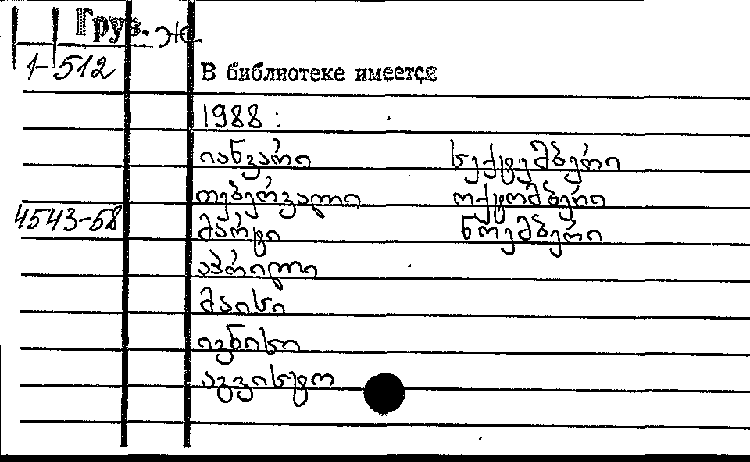 Груз. Ж
1-512
В библиотеке имеется
1988:
იანვარი
თებერვალი
4543-58
მარტი
აპრილი
მაისი
ივნისი
აგვისტო
სექტემბერი
ოქტომბერი
ნოემბერი